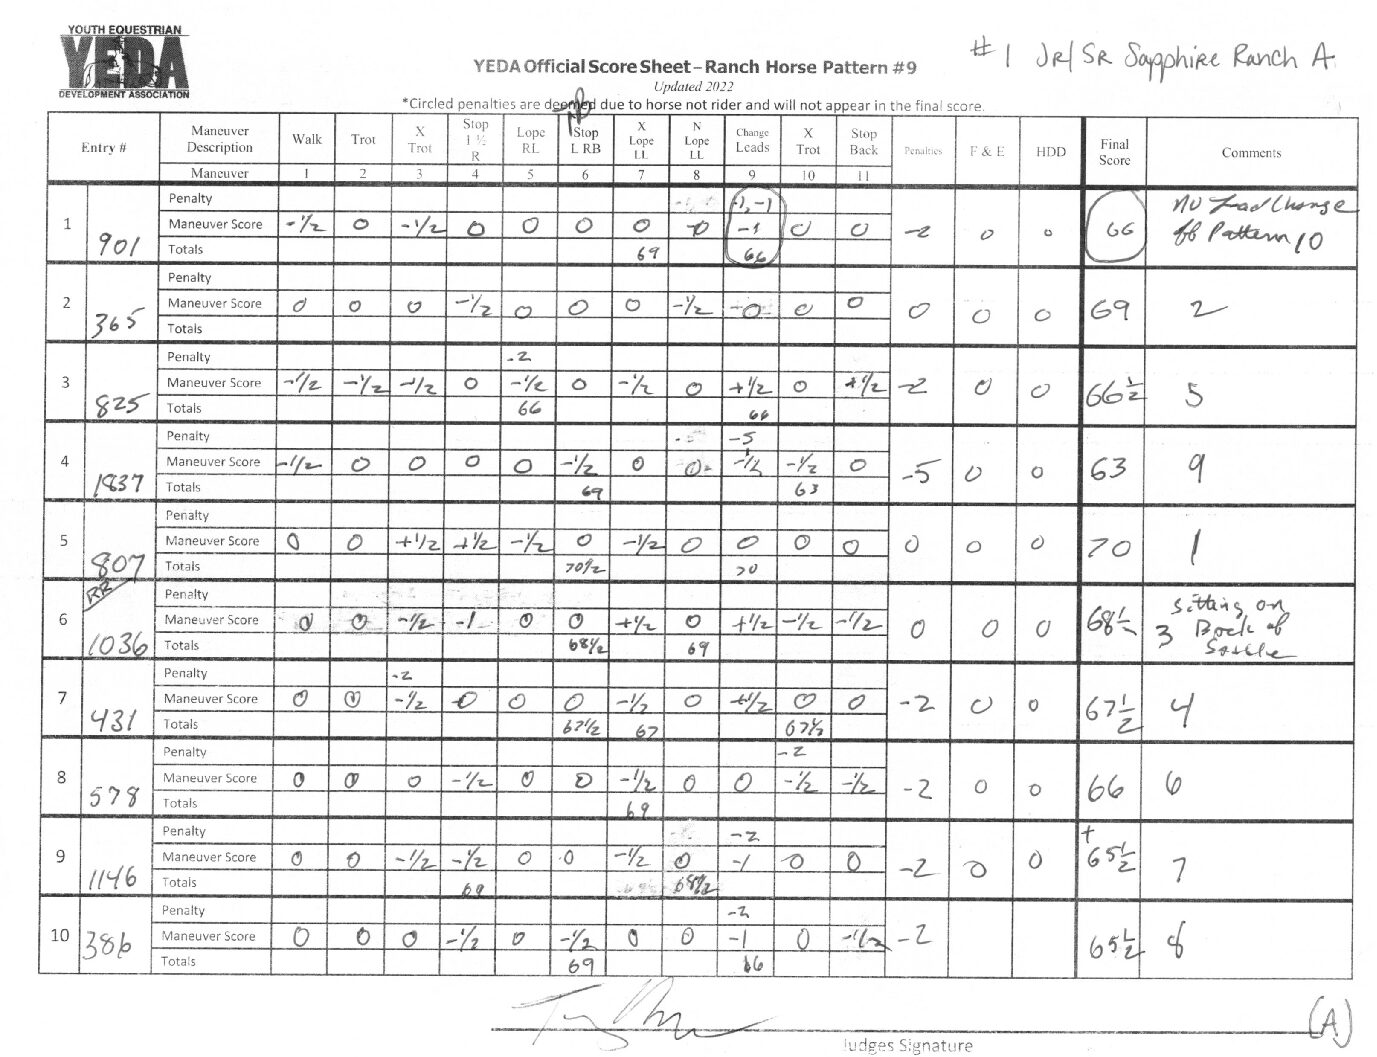 YOUTH EQUESTRIAN
YEDA
DEVELOPMENT ASSOCIATION
#1 JR/SR Sapphire Ranch A
YEDA Official Score Sheet – Ranch Horse Pattern #9
Updated 2022
*Circled penalties are deemed due to horse not rider and will not appear in the final score.
Entry # Maneuver Description Walk Trot X Trot Stop 1 ½ R Lope RL Stop L RB X Lope LL N Lope LL Change Leads X Trot Stop Back Penalties F & E HDD Final Score Comments
Maneuver 1 2 3 4 5 6 7 8 9 10 11
1 901
Penalty -1, -1
Maneuver Score -1/2 0 -1/2 0 0 0 0 0 -1 0 0 -2 0 0 66 No Lead Change
off Pattern 10
Totals 69 66
2 365
Penalty
Maneuver Score 0 0 0 -1/2 0 0 0 -1/2 0 0 0 0 0 0 69 2
Totals
3 825
Penalty -2
Maneuver Score -1/2 -1/2 -1/2 0 -1/2 0 -1/2 0 +1/2 0 +1/2 -2 0 0 66 1/2 5
Totals 66 66
4 1837
Penalty -5
Maneuver Score -1/2 0 0 0 0 -1/2 0 0 -1/2 -1/2 0 -5 0 0 63 9
Totals 69 63
5 807
Penalty
Maneuver Score 0 0 +1/2 +1/2 -1/2 0 -1/2 0 0 0 0 0 0 0 70 1
Totals 70 1/2 70
6 RR 1036
Penalty
Maneuver Score 0 0 -1/2 -1 0 0 +1/2 0 +1/2 -1/2 -1/2 0 0 0 68 1/2 3 Sitting on
Back of
Saddle
Totals 68 1/2 69
7 431
Penalty -2
Maneuver Score 0 0 -1/2 0 0 0 -1/2 0 +1/2 0 0 -2 0 0 67 1/2 4
Totals 67 1/2 67 67 1/2
8 578
Penalty -2
Maneuver Score 0 0 0 -1/2 0 0 -1/2 0 0 -1/2 -1/2 -2 0 0 66 6
Totals 69
9 1146
Penalty -2
Maneuver Score 0 0 -1/2 -1/2 0 0 -1/2 0 -1 0 0 -2 0 0 + 65 1/2 7
Totals 69 68 1/2
10 386
Penalty -2
Maneuver Score 0 0 0 -1/2 0 -1/2 0 0 -1 0 -1/2 -2 65 1/2 8
Totals 69 66
(A)
Judges Signature